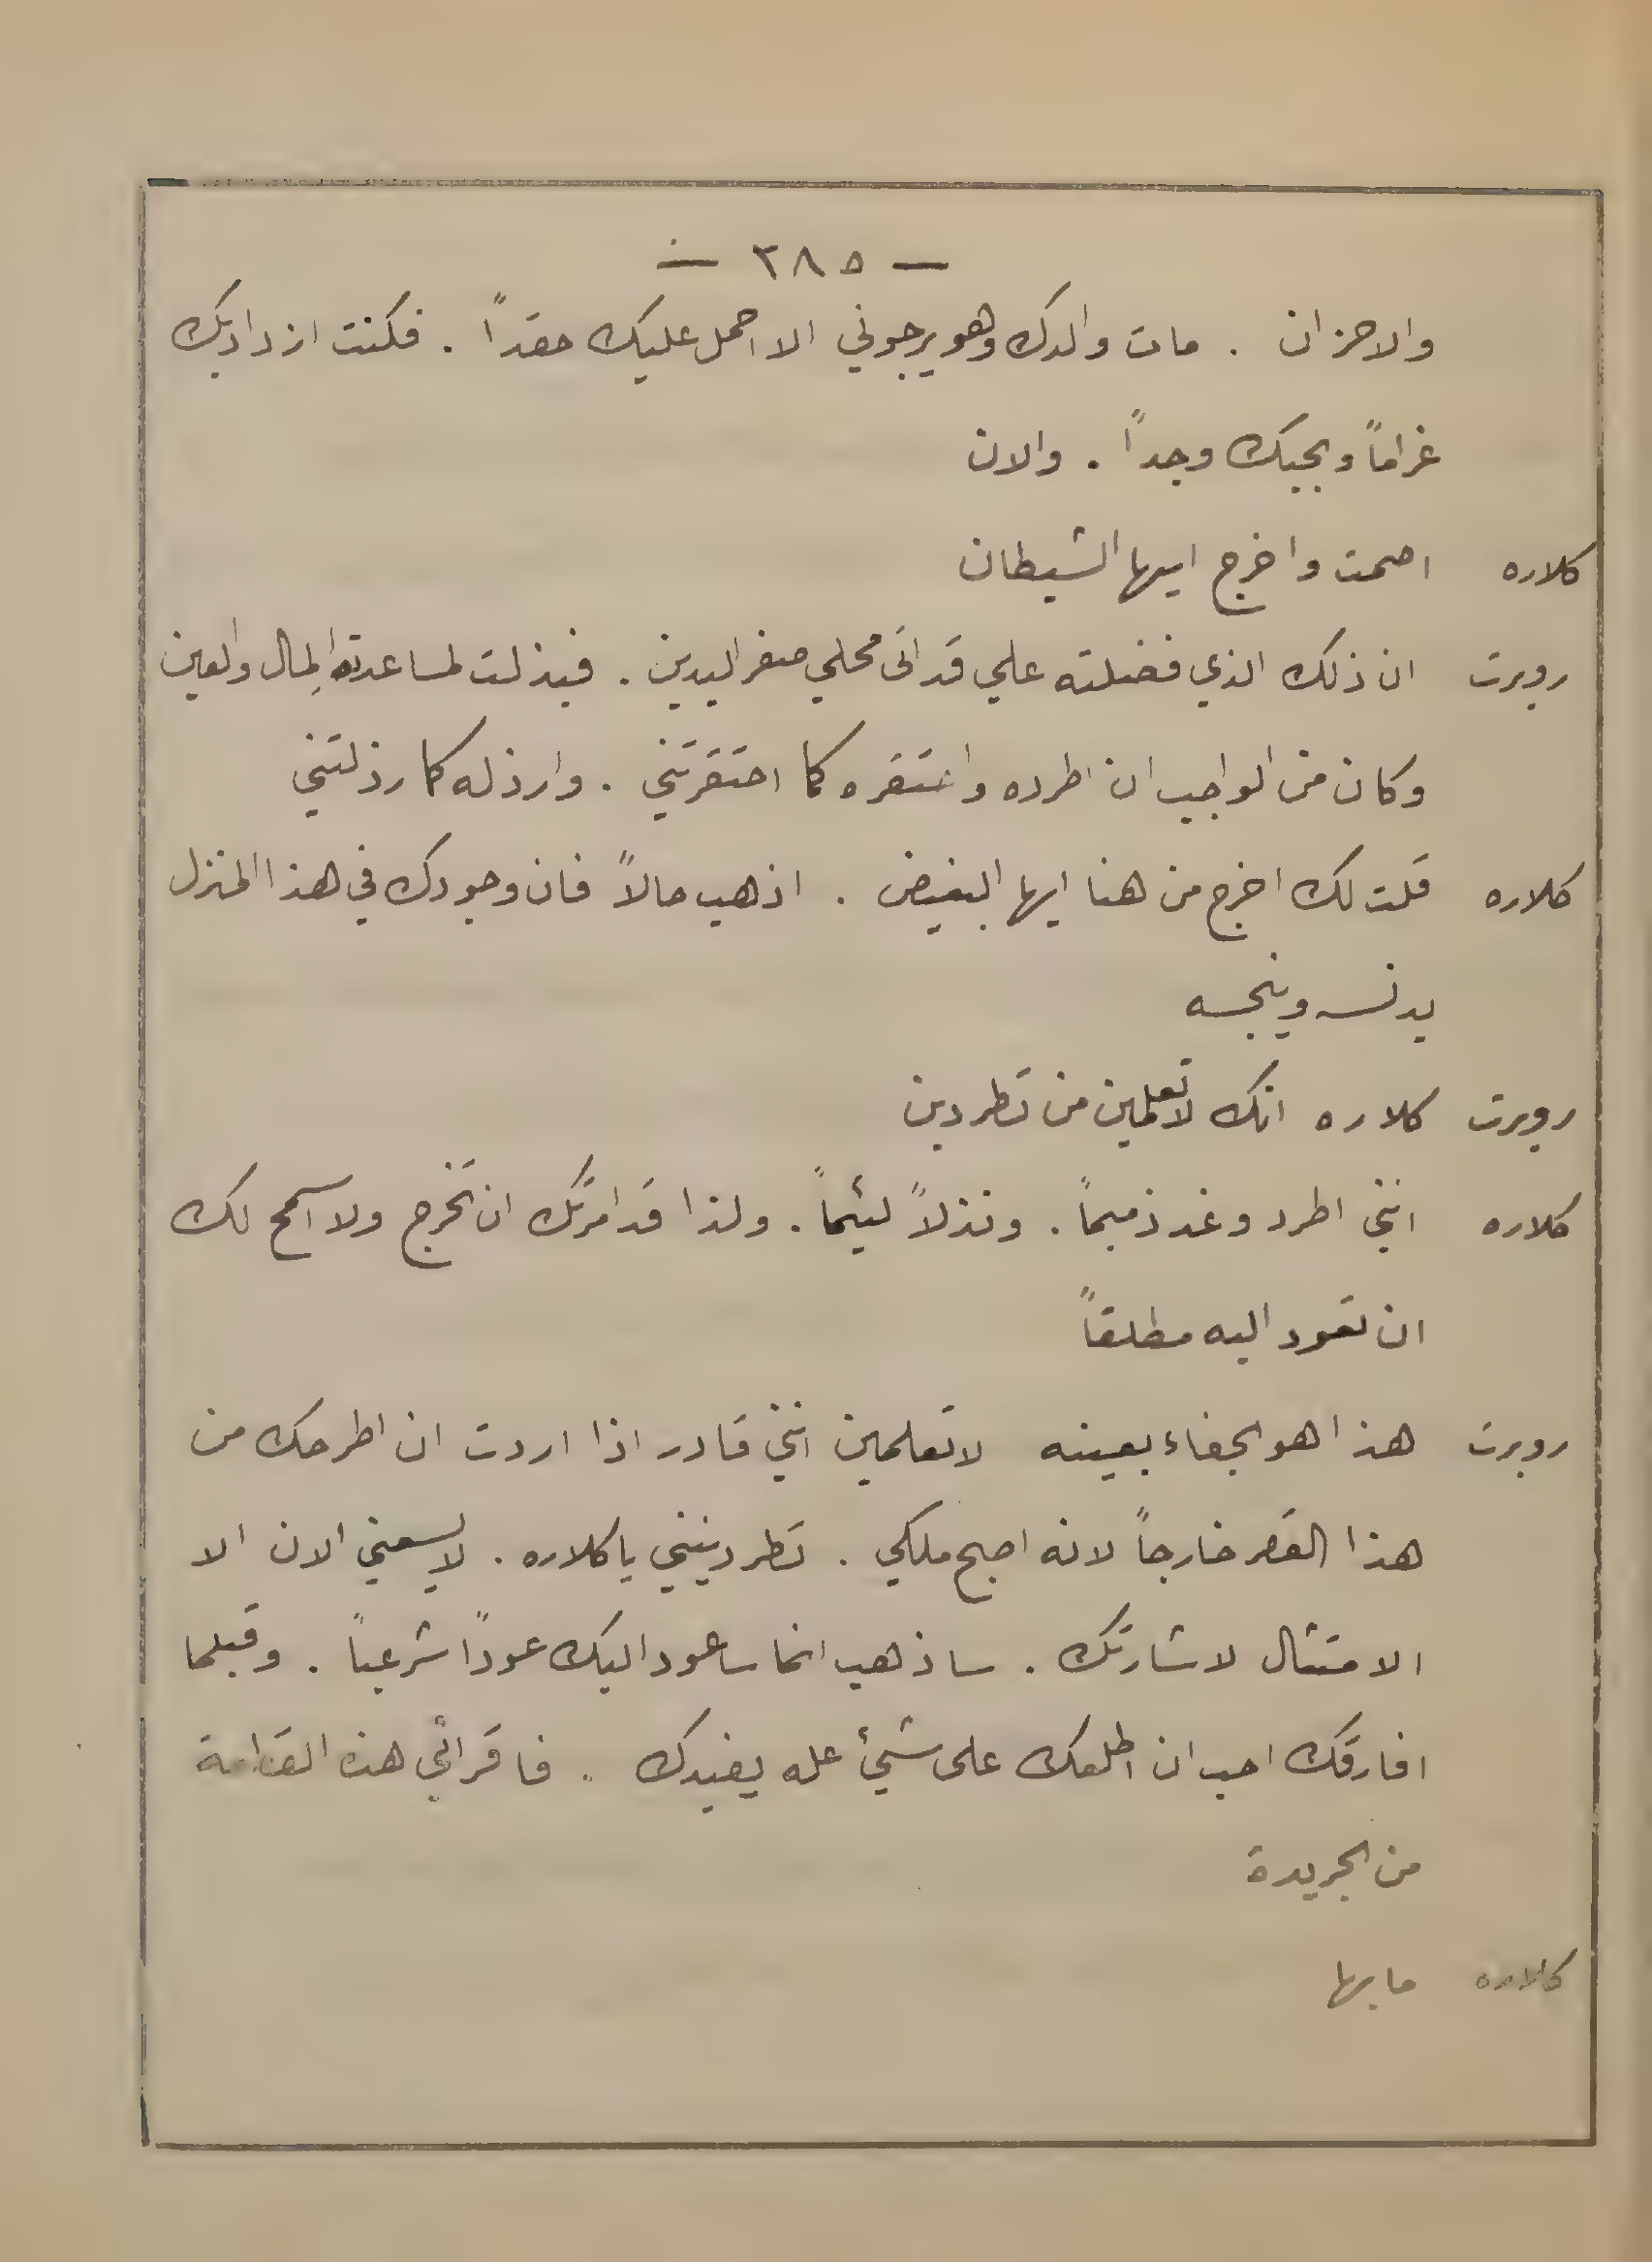 — ٢٨٥ —
والاحزان . مات والدك وهو يرجوني الا احمل عليك حقداً . فكنت ازداد بك
غراماً وبحبك وجداً . والان
كلاره اصمت واخرج ايها الشيطان
روبرت ان ذلك الذي فضلته علي قد اتى محلي صفر اليدين . فبذلت لمساعدته المال والعين
وكان من الواجب ان اطرده واحتقره كما احتقرتني . وارذله كما رذلتني
كلاره قلت لك اخرج من هنا ايها البغيض . اذهب حالاً فان وجودك في هذا المنزل
يدنسه وينجسه
روبرت كلاره انك لا تعلمين من تطردين
كلاره انني اطرد وغد ذميماً . ونذلاً لئيماً . ولذا قد امرتك ان تخرج ولا اسمح لك
ان تعود اليه مطلقاً
روبرت هذا هو الجفاء بعينه لا تعلمين انني قادر اذا اردت ان اطرحك من
هذا القصر خارجاً لانه اصبح ملكي . تطردينني يا كلاره . لا يسعني الان الا
الامتثال لاشارتك . ساذهب انما ساعود اليك عوداً شرعياً . وقبلما
افارقك احب ان اطلعك على شيئ عله يفيدك . فاقرائي هذه القطعة
من الجريدة
كلاره ما بها